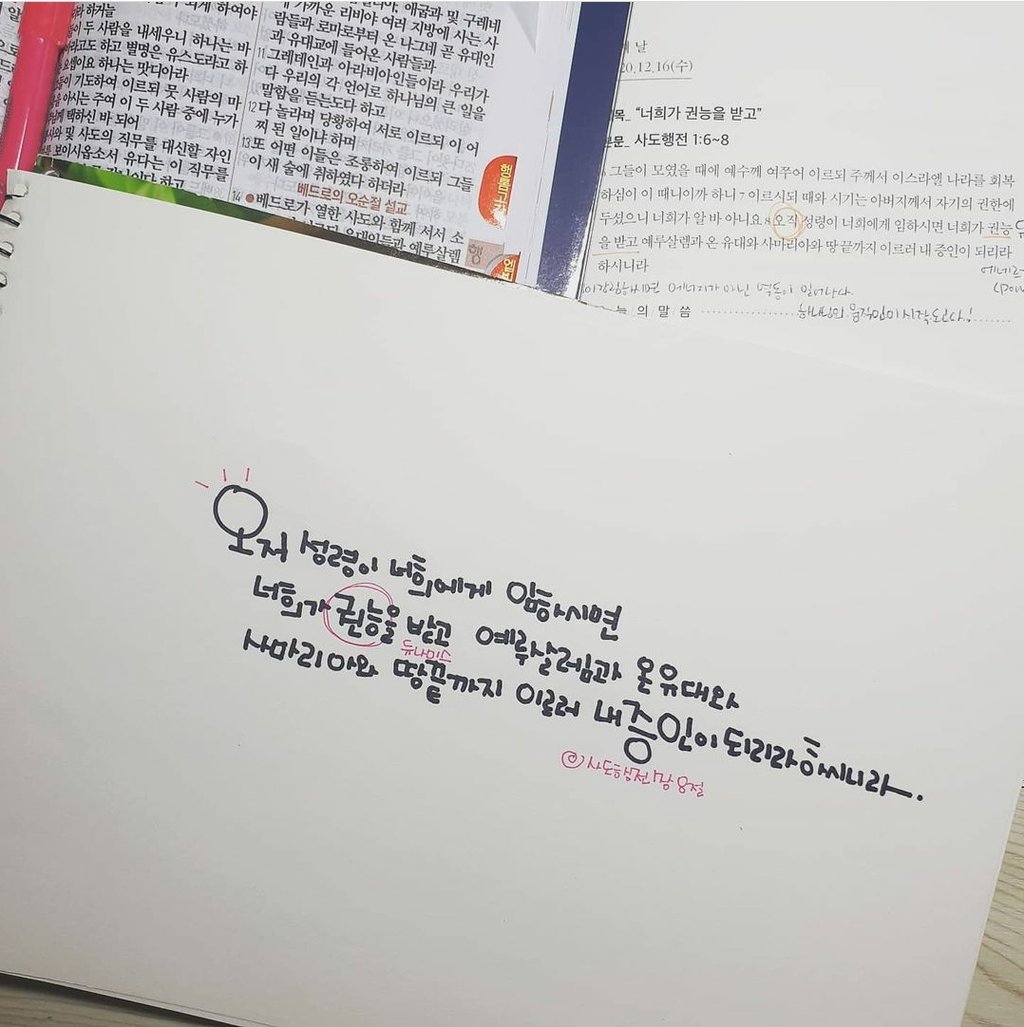 하거늘
두 사람을 내세우니 하나는 바
라고도 하고 별명은 유스도라고 하
요셉이요 하나는 맛디아라
들이 기도하여 이르되 뭇 사람의 마
아시는 주여 이 두 사람 중에 누가
택하신 바 되어
및 사도의 직무를 대신할 자인
보이시옵소서 유다는 이 직무를
가까운 리비야 여러 지방에 사는 사
람들과 로마로부터 온 나그네 곧 유대인
과 유대교에 들어온 사람들과
11 그레데인과 아라비아인들이라 우리가
다 우리의 각 언어로 하나님의 큰 일을
말함을 듣는도다 하고
12 다 놀라며 당황하여 서로 이르되 이 어
찌 된 일이냐 하며
13 또 어떤 이들은 조롱하여 이르되 그들
이 새 술에 취하였다 하더라
베드로의 오순절 설교
14 베드로가 열한 사도와 함께 서서 소
유대인들과 예루살렘
행
날
20.12.16(수)
목_ “너희가 권능을 받고”
본문_ 사도행전 1:6~8
그들이 모였을 때에 예수께 여쭈어 이르되 주께서 이스라엘 나라를 회복
하심이 이 때니이까 하니 7 이르시되 때와 시기는 아버지께서 자기의 권한에
두셨으니 너희가 알 바 아니요 8 오직 성령이 너희에게 임하시면 너희가 권능
을 받고 예루살렘과 온 유대와 사마리아와 땅 끝까지 이르러 내 증인이 되리라
하시니라
에너지가 아닌 역동이 일어난다.
늘의 말씀 하나님의 움직임이 시작된다!
오직 성령이 너희에게 임하시면
너희가 권능을 받고 예루살렘과 온유대와
듀나미스
사마리아와 땅끝까지 이르러 내증인이되리라하시니라.
사도행전 1장 8절